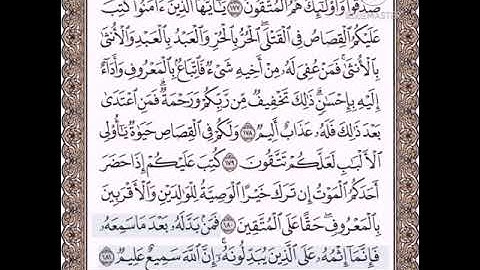 صَدَقُوا۟ وَأُو۟لَٰٓئِكَ هُمُ ٱلْمُتَّقُونَ ١٧٧ يَٰٓأَيُّهَا ٱلَّذِينَ ءَامَنُوا۟ كُتِبَ
عَلَيْكُمُ ٱلْقِصَاصُ فِى ٱلْقَتْلَى ٱلْحُرُّ بِٱلْحُرِّ وَٱلْعَبْدُ بِٱلْعَبْدِ وَٱلْأُنثَىٰ
بِٱلْأُنثَىٰ فَمَنْ عُفِىَ لَهُۥ مِنْ أَخِيهِ شَىْءٌ فَٱتِّبَاعٌۢ بِٱلْمَعْرُوفِ وَأَدَآءٌ
إِلَيْهِ بِإِحْسَٰنٍ ذَٰلِكَ تَخْفِيفٌ مِّن رَّبِّكُمْ وَرَحْمَةٌ فَمَنِ ٱعْتَدَىٰ
بَعْدَ ذَٰلِكَ فَلَهُۥ عَذَابٌ أَلِيمٌ ١٧٨ وَلَكُمْ فِى ٱلْقِصَاصِ حَيَوٰةٌ يَٰٓأُو۟لِى
ٱلْأَلْبَٰبِ لَعَلَّكُمْ تَتَّقُونَ ١٧٩ كُتِبَ عَلَيْكُمْ إِذَا حَضَرَ
أَحَدَكُمُ ٱلْمَوْتُ إِن تَرَكَ خَيْرًا ٱلْوَصِيَّةُ لِلْوَٰلِدَيْنِ وَٱلْأَقْرَبِينَ
بِٱلْمَعْرُوفِ حَقًّا عَلَى ٱلْمُتَّقِينَ ١٨٠ فَمَنۢ بَدَّلَهُۥ بَعْدَ مَا سَمِعَهُۥ
فَإِنَّمَآ إِثْمُهُۥ عَلَى ٱلَّذِينَ يُبَدِّلُونَهُۥٓ إِنَّ ٱللَّهَ سَمِيعٌ عَلِيمٌ ١٨١